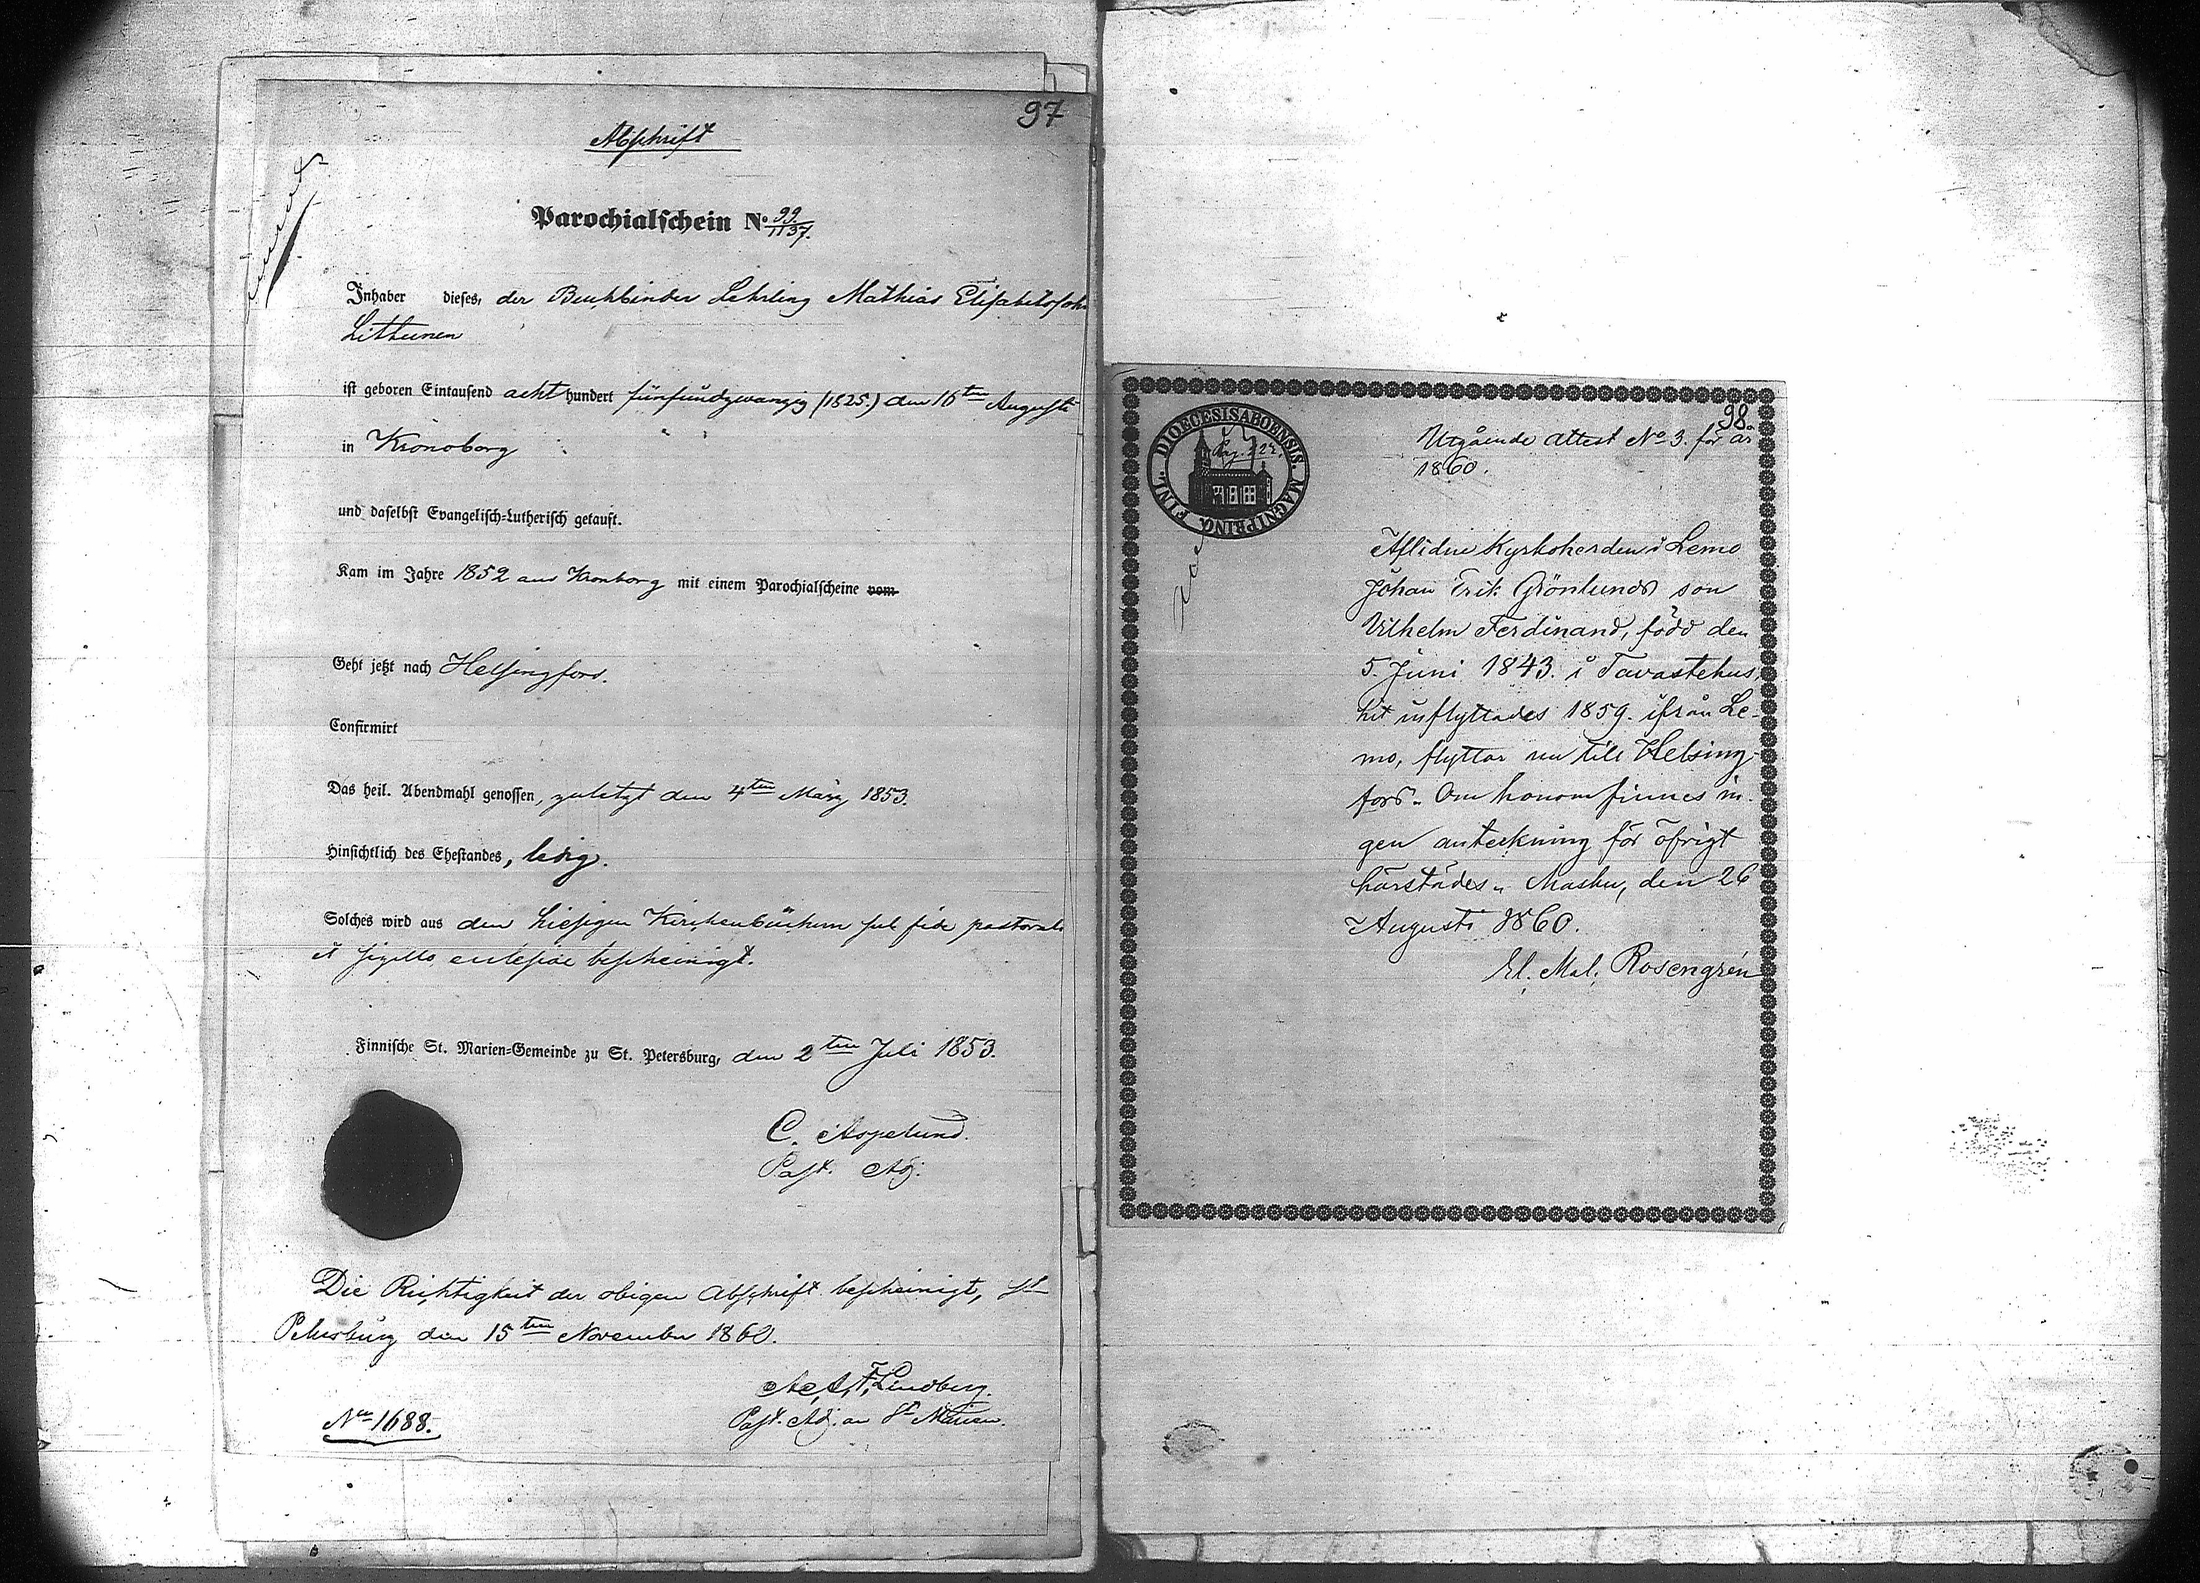 97
Abschrift
Parochialschein No 99/1137.
Inhaber dieses, der Buchbinder Lehrling Mathias Elisabethsohn
Litkunen
ist geboren Eintausend acht hundert fünfundzwanzig (1825.) den 16ten Augusti
in Kronoborg
und daselbst Evangelisch-Lutherisch getauft.
Kam im Jahre 1852 aus Kronborg mit einem Parochialscheine vom
Geht jetzt nach Helsingfors.
Confirmirt
Das heil. Abendmahl genossen, zuletzt den 4ten März 1853.
Hinsichtlich des Ehestandes, ledig.
Solches wird aus den hiesigen Kirchenbüchern sub fide pastorali
et sigillo ecclesiae bescheinigt.
Finnische St. Marien-Gemeinde zu St. Petersburg, den 2ten Juli 1853.
C. Aspelund.
Past. Adj.
Die Richtigkeit der obigen Abschrift bescheinigt, St
Petersburg den 15ten November 1860.
Lindberg.
Past. Adj. an St Marien.
No 1688.
98.
DIOECESIS ABOENSIS. MAGNI PRING. FINL.
Utgående attest No 3. för år
1860.
Aflidne Kyrkoherden i Lemo
Johan Erik Grönlunds son
Vilhelm Ferdinand, född den
5. Juni 1843. i Tavastehus,
hit inflyttades 1859. ifrån Le-
mo, flyttar nu till Helsing-
fors. Om honom finnes in-
gen anteckning för öfrigt
härstädes. Masku, den 26
Augusti 1860.
El. Mal. Rosengrén